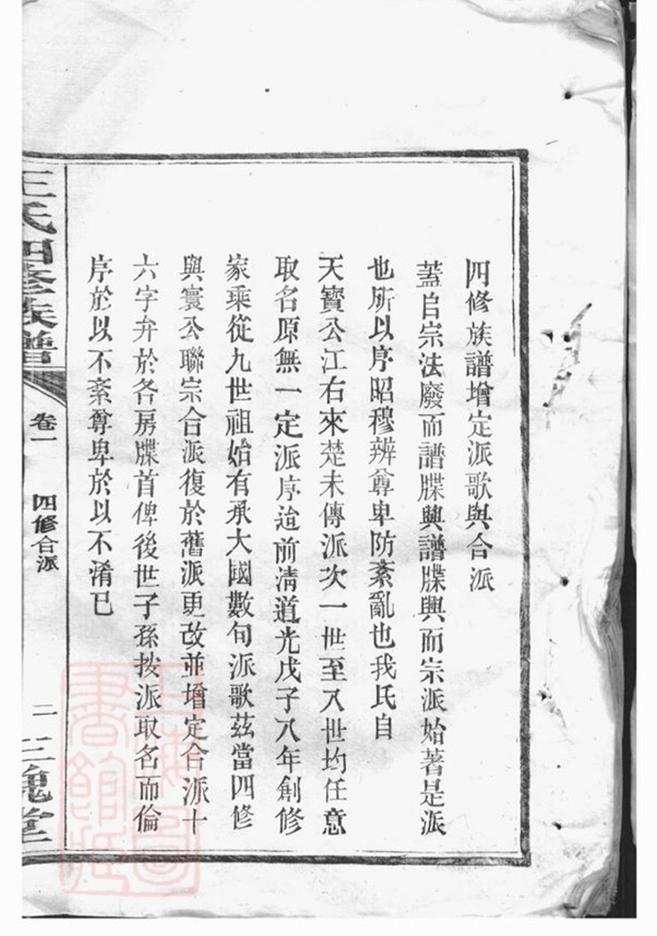 四修族譜增定派歌與合派
蓋自宗法廢而譜牒興譜牒興而宗派始著是派
也所以序昭穆辨尊卑防紊亂也我氏自
天寶公江右來楚未傳派次一世至八世均任意
取名原無一定派序迨前淸道光戊子八年創修
家乘從九世祖始有承大國數句派歌茲當四修
與寰公聯宗合派復於舊派更改並增定合派十
六字弁於各房牒首俾後世子孫按派取名而倫
序於以不紊尊卑於以不淆已
王氏四修族譜
卷一
四修合派
二
三槐堂
上海圖書館藏